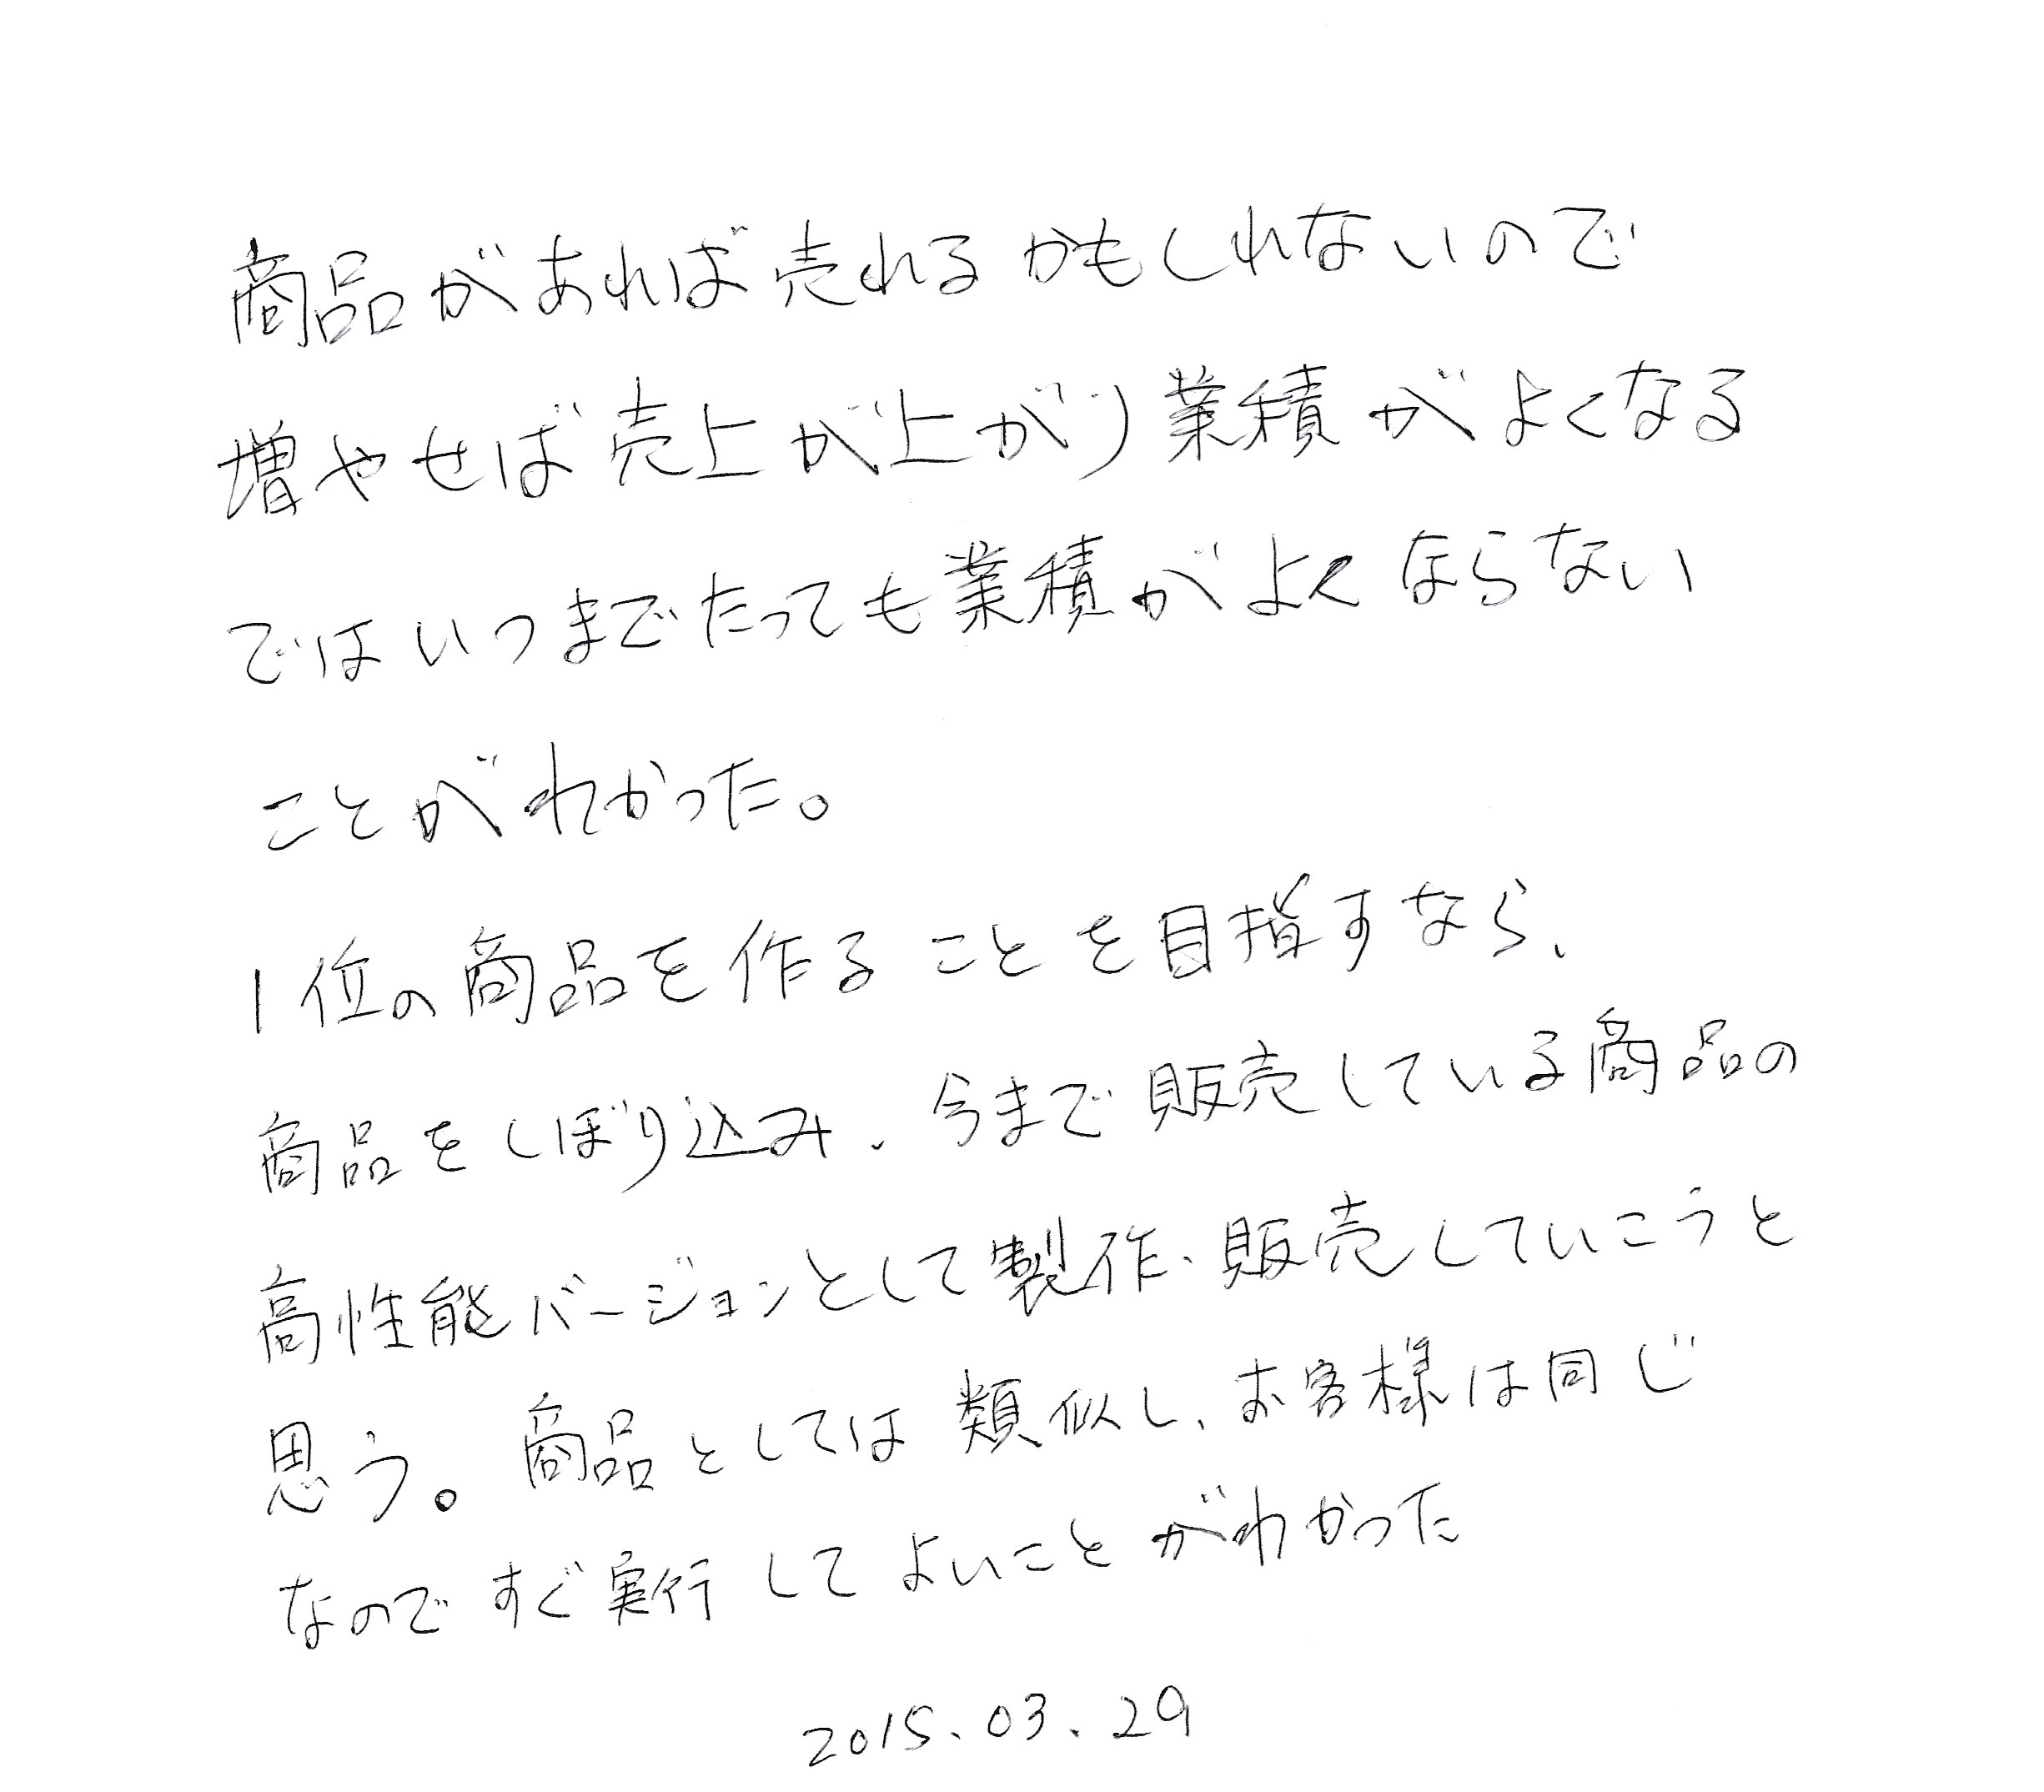 商品があれば売れるかもしれないので
増やせば売上が上がり業績がよくなる
ではいつまでたっても業績がよくならない
ことがわかった。
1位の商品を作ることを目指すなら、
商品をしぼり込み、今まで販売している商品の
高性能バージョンとして製作、販売していこうと
思う。商品としては類似し、お客様は同じ
なのですぐ実行してよいことがわかった
2015.03.29